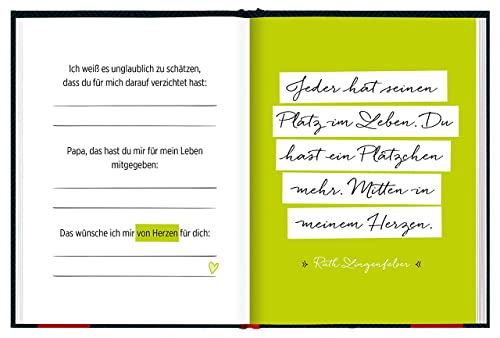 Ich weiß es unglaublich zu schätzen,
dass du für mich darauf verzichtet hast:
Papa, das hast du mir für mein Leben
mitgegeben:
Das wünsche ich mir von Herzen für dich:
Jeder hat seinen
Platz im Leben. Du
hast ein Plätzchen
mehr. Mitten in
meinem Herzen.
» Ruth Lingenfelser «